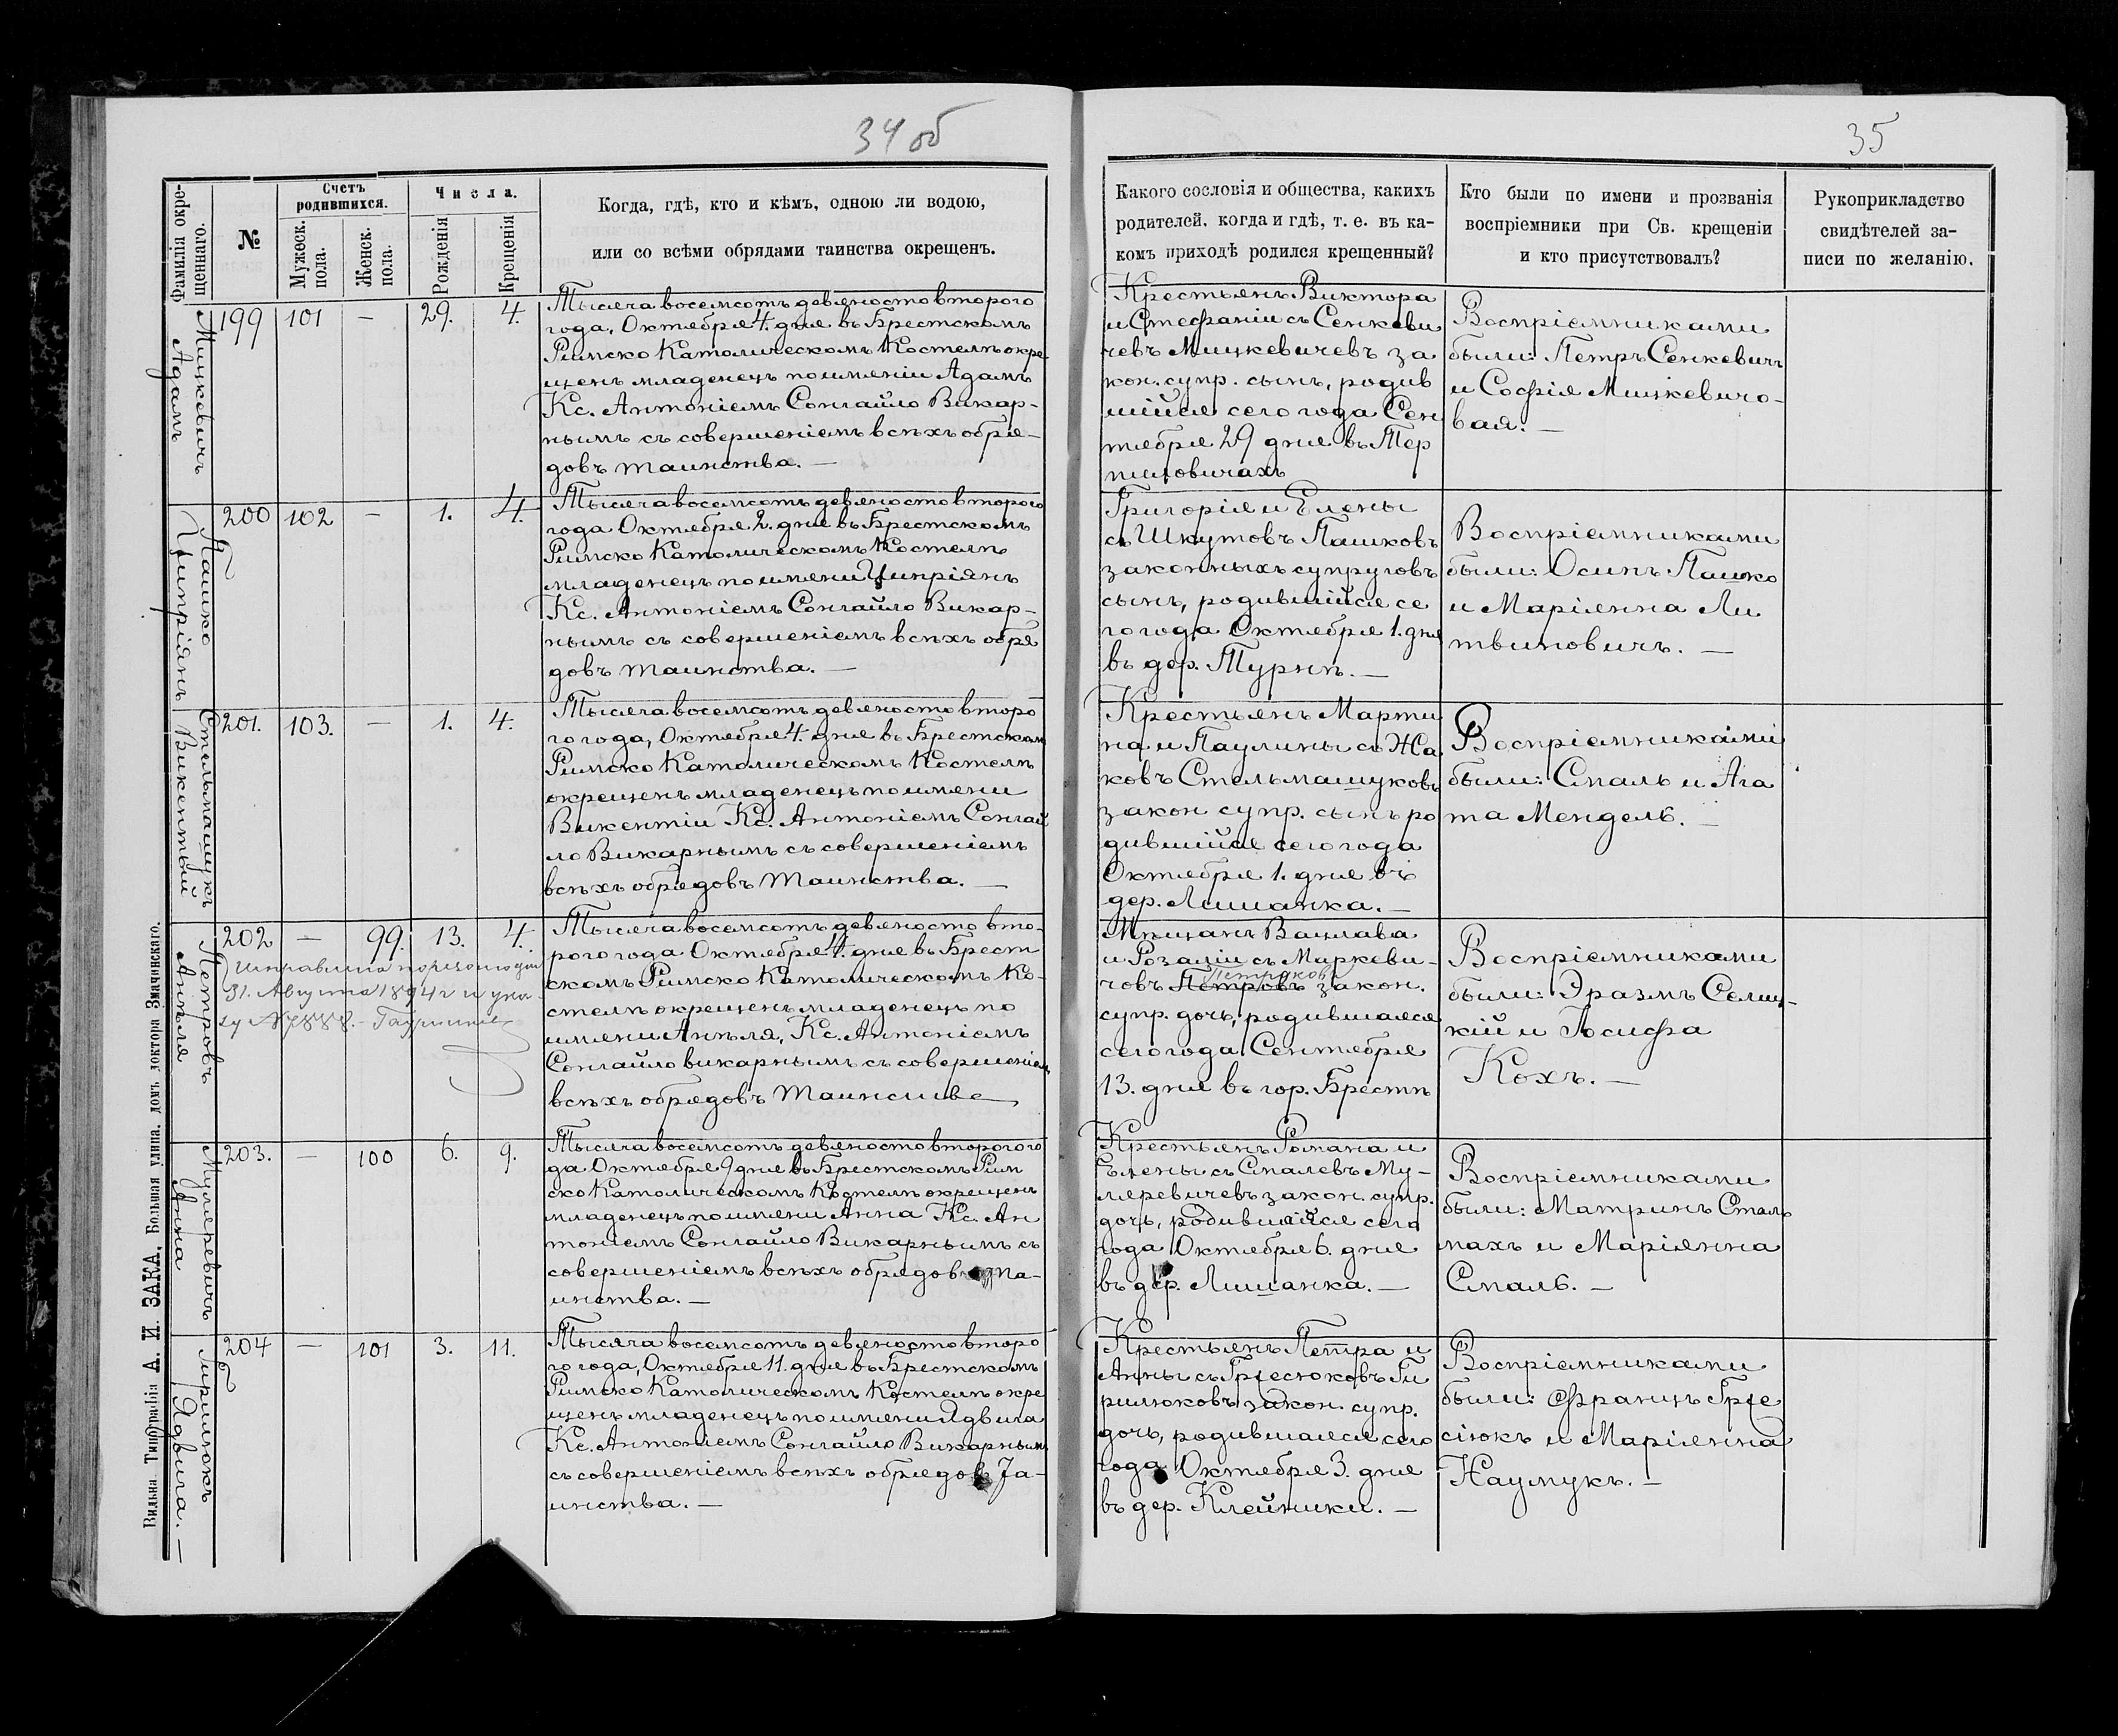 34 об
35
Фамилія окре-
щеннаго.
№
Счетъ
родившихся.
Мужеск.
пола.
Женск.
пола.
Числа.
Рожденія
Крещенія
Когда, гдѣ, кто и кѣмъ, одною ли водою,
или со всѣми обрядами таинства окрещенъ.
Какого сословія и общества, какихъ
родителей, когда и гдѣ, т. е. въ ка-
комъ приходѣ родился крещенный?
Кто были по имени и прозванія
воспріемники при Св. крещеніи
и кто присутствовалъ?
Рукоприкладство
свидѣтелей за-
писи по желанію.
Мицкевичъ
Адамъ
199 101 — 29. 4.
Тысяча восемсотъ девяносто второго
года, Октября 4. дня въ Брестскомъ
Римско Католическомъ Костелѣ окре
щенъ младенецъ по имени Адамъ
Кс. Антоніемъ Сонгайло Викар-
нымъ съ совершеніемъ всѣхъ обря-
довъ таинства. —
Крестьянъ Виктора
и Стефаніи съ Сенкеви
чевъ Мицкевичевъ за
кон. супр. сынъ, родив
шійся сего года Сен
тября 29 дня въ Тер
пиловичахъ
Воспріемниками
были: Петръ Сенкевичъ
и Софія Мицкевичо-
вая. —
Пашко
Ципріянъ
200 102 — 1. 4.
Тысяча восемсотъ девяносто второго
года Октября 2. дня въ Брестскомъ
Римско Католическомъ Костелѣ
младенецъ по имени Ципріянъ
Кс. Антоніемъ Сонгайло Викар-
нымъ съ совершеніемъ всѣхъ обря
довъ таинства. —
Григорія и Елены
съ Шкутовъ Пашковъ
законныхъ супруговъ
сынъ, родившійся се
го года Октября 1. дня
въ дер. Турнѣ. —
Воспріемниками
были: Осипъ Пашко
и Маріянна Ли
твиновичъ. —
Стельмащукъ
Викентый
201. 103. — 1. 4.
Тысяча восемсотъ девяносто второ
го года, Октября 4. дня въ Брестском
Римско Католическомъ Костелѣ
окрещенъ младенецъ по имени
Викентіи Кс. Антоніемъ Сонгай
ло Викарнымъ съ совершеніемъ
всѣхъ обрядовъ Таинства. —
Крестьянъ Марти
на и Паулины съ Жа
ковъ Стельмащуковъ
закон супр. сынъ ро
дившійся сего года
Октября 1. дня въ
дер. Лишанка. —
Воспріемниками
были: Сталь и Ага
та Мендель. —
Петровъ
Анѣля
202 — 99. 13. 4.
31. Августа 1894 г и ука-
Тысяча восемсотъ девяносто вто-
рого года Октября 4. дня въ Брест
скомъ Римско Католическомъ Ко-
стелѣ окрещенъ младенецъ по
имени Анѣля, Кс. Антоніемъ
Сонгайло викарнымъ съ совершеніем
всѣхъ обрядовъ Таинства
Мѣщанъ Вацлава
и Розаліи съ Миркеви-
Петраковъ
човъ Петровъ закон.
супр. дочь, родившаяся
сего года Сентября
13. дня въ гор. Брестѣ
Воспріемниками
были: Эразмъ Селиц-
кій и Іосифа
Кохъ. —
Муляревичъ
Анна
203. — 100 6. 9.
Тысяча восемсотъ девяносто второго го
да Октября 9 дня въ Брестскомъ Рим
ско Католическомъ Костелѣ окрещенъ
младенецъ по имени Анна Кс. Ан
тоніемъ Сонгайло Викарнымъ съ
совершеніемъ всѣхъ обрядовъ Та-
инства. —
Крестьянъ Романа и
Елены съ Сталевъ Му-
ляревичевъ закон. супр.
дочь, родившаяся сего
года Октября 6. дня
въ дер. Лишанка. —
Воспріемниками
были: Матринъ Сталь
махъ и Маріянна
Сталь. —
Гирилюкъ
Ядвига. —
204 — 101 3. 11.
Тысяча восемсотъ девяносто второ
го года, Октября 11. дня въ Брестскомъ
Римско Католическомъ Костелѣ окре
щенъ младенецъ по имени Ядвига
Кс. Антоніемъ Сонгайло Викарнымъ
съ совершеніемъ всѣхъ обрядовъ Та-
инства. —
Крестьянъ Петра и
Анны съ ГрJесюковъ Ги
рилюковъ закон. супр.
дочь, родившаяся сего
года Октября 3. дня
въ дер. Клейники. —
Воспріемниками
были: Францъ
сіюкъ и Маріянна
Наумукъ. —
Вильна. Типографія А. И. ЗАКА, Большая улица, домъ доктора Змачинскаго.